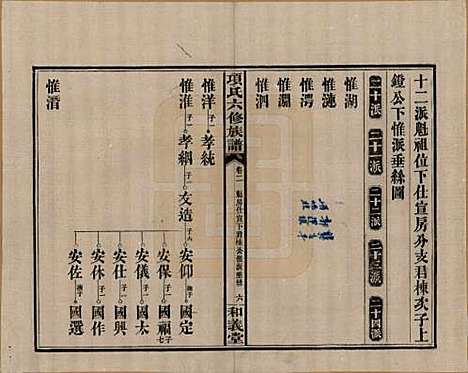 十二派魁祖位下仕宣房分支君棟次子上
鐙公下惟派垂絲圖
二十派 二十一派 二十二派 二十三派 二十四派
惟湖
惟漣
惟渭
惟淵
惟泗
項氏六修族譜
卷二
六
和義堂
惟洋 子一 孝統
惟淮 子一 孝綱 子一 文造 子六 安仰 撫子 國定
安保 子一 國福 子七
安儀 子一 國太
安仕 子一 國興
安休 子一 國作
安佐 撫子 國選
惟濳